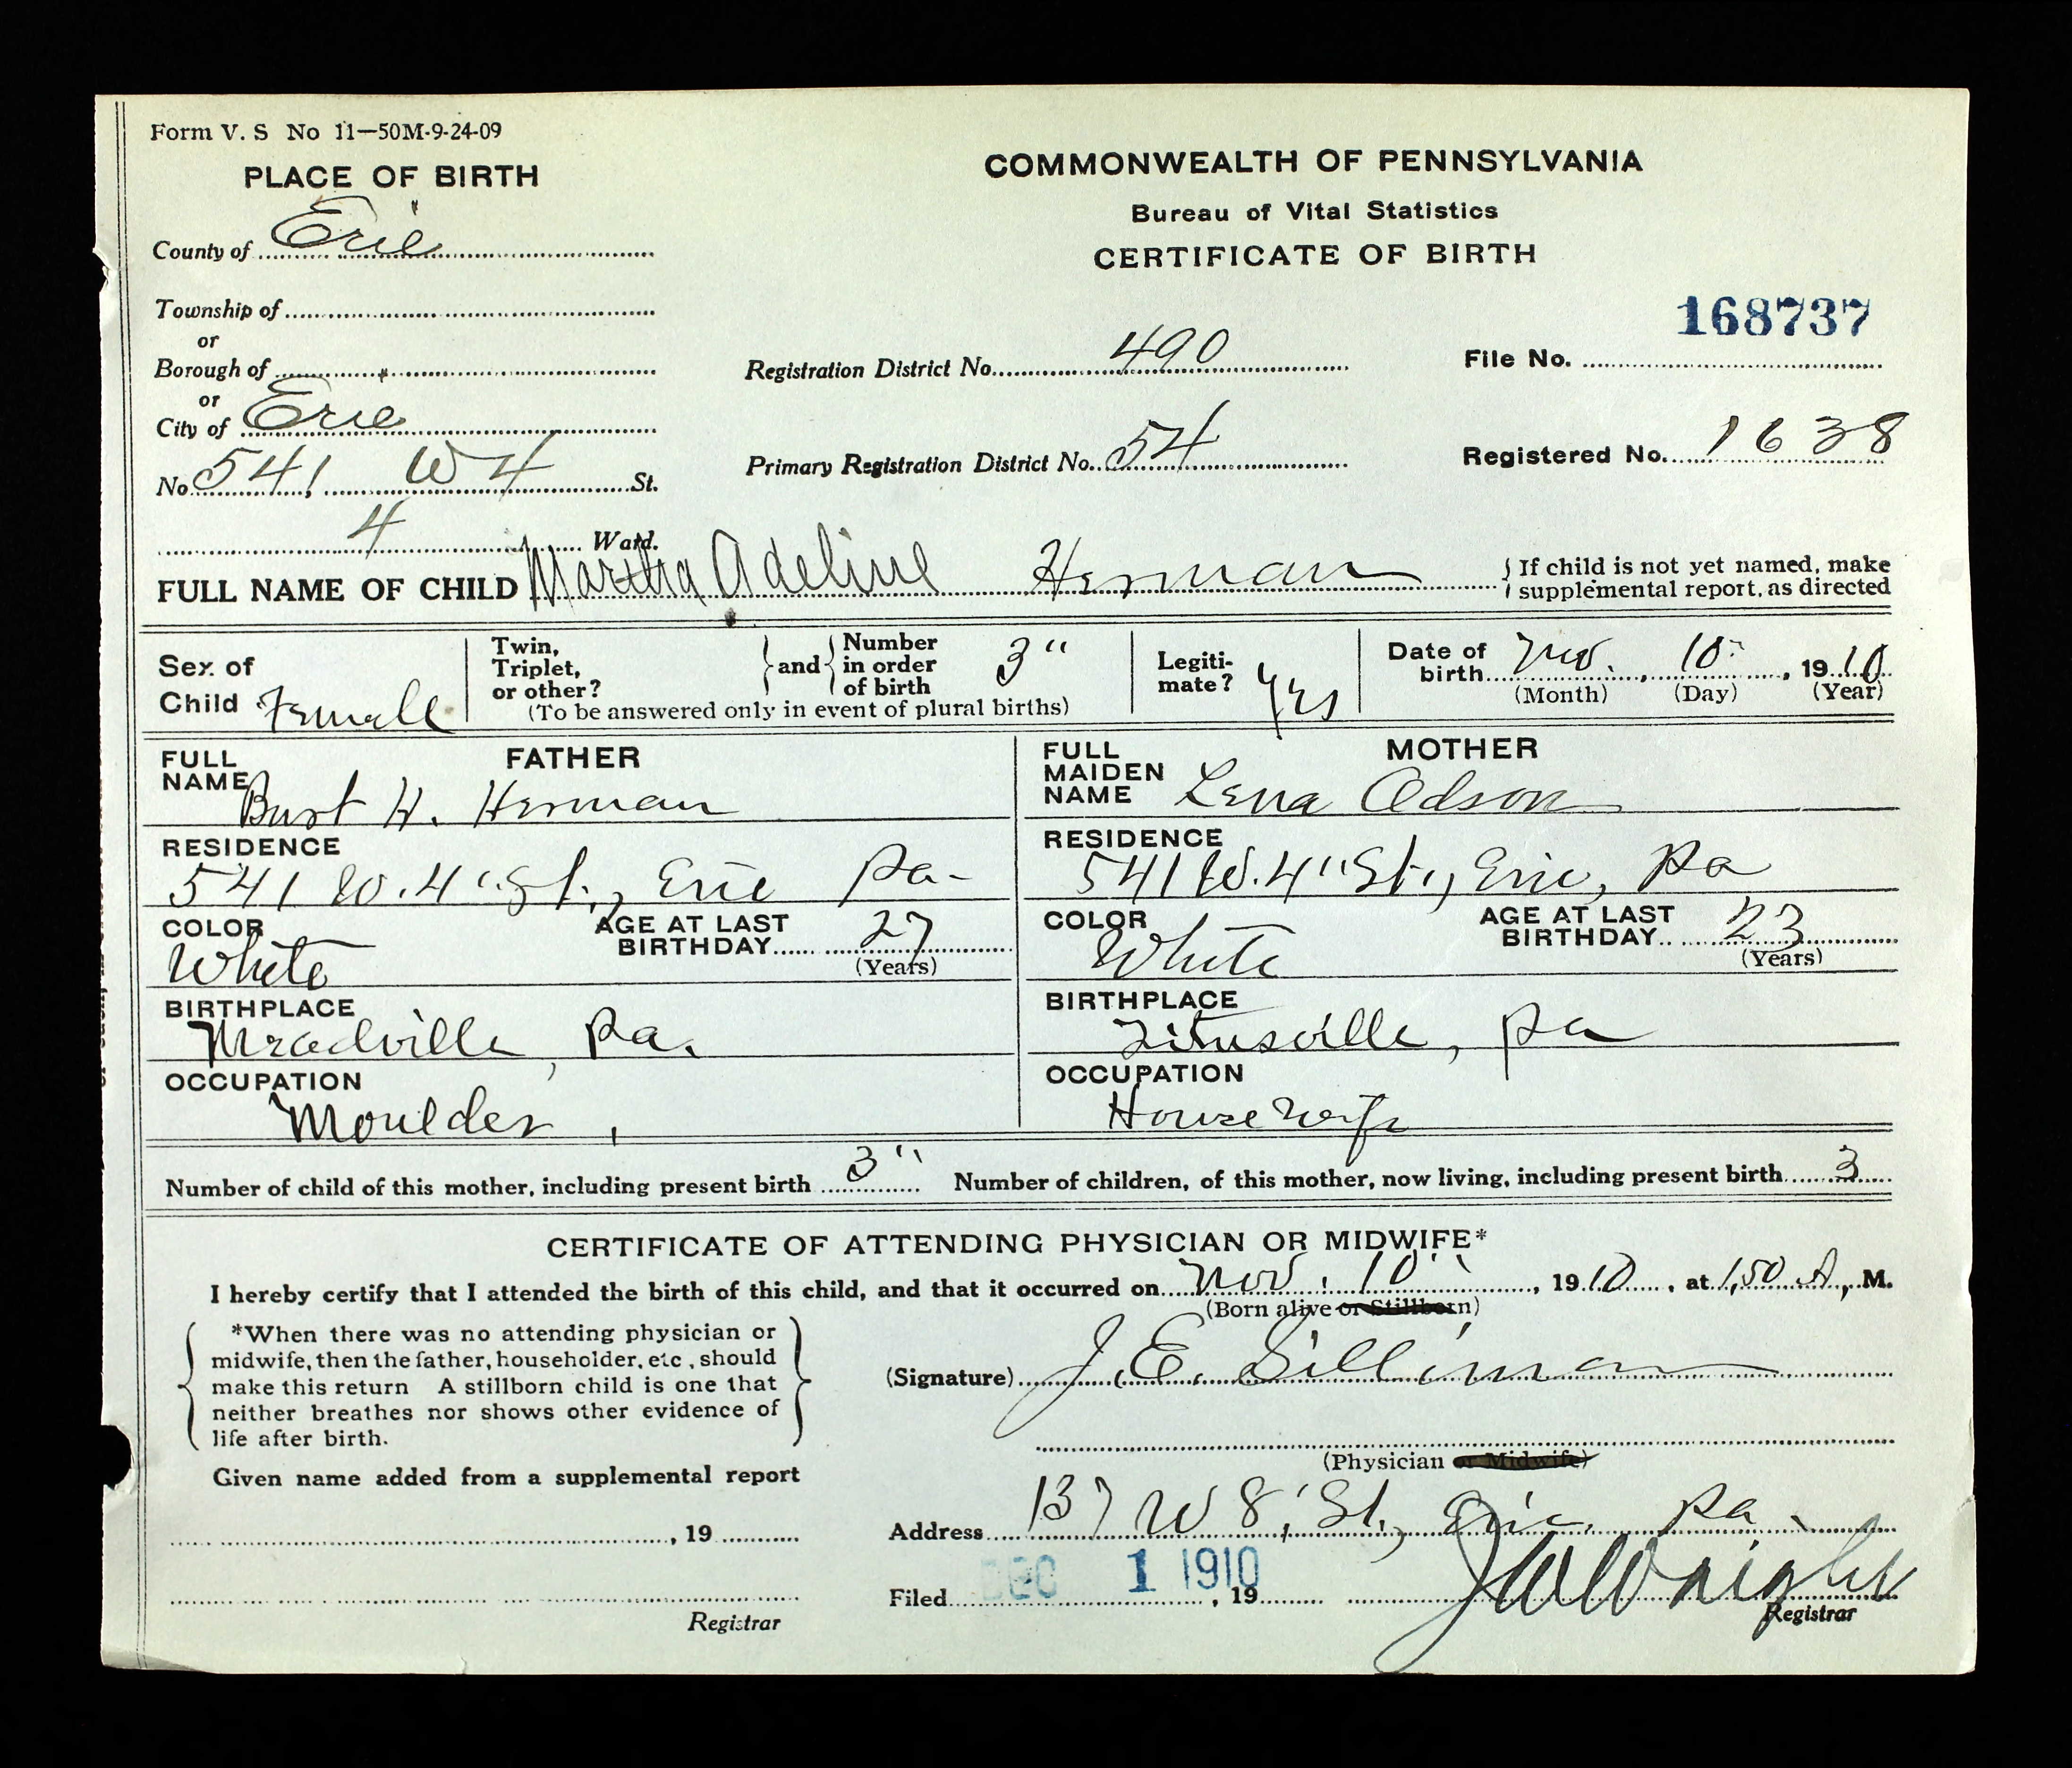 Form V. S No 11—50M-9-24-09
PLACE OF BIRTH
County of Erie
Township of
or
Borough of
or
City of Erie
No. 541 W 4 St.
4 Ward.
COMMONWEALTH OF PENNSYLVANIA
Bureau of Vital Statistics
CERTIFICATE OF BIRTH
168737
Registration District No. 490 File No.
Primary Registration District No. 54 Registered No. 1638
FULL NAME OF CHILD Martha Adeline Herman { If child is not yet named, make
supplemental report, as directed
Sex of
Child Female
Twin,
Triplet,
or other? } and { Number
in order
of birth 3"
(To be answered only in event of plural births)
Legiti-
mate? Yes
Date of
birth Nov. 10" , 1910
(Month) (Day) (Year)
FATHER
FULL
NAME Burt H. Herman
RESIDENCE
541 W. 4" St., Erie Pa-
COLOR
White
AGE AT LAST
BIRTHDAY 27
(Years)
BIRTHPLACE
Meadville, Pa.
OCCUPATION
Moulder
MOTHER
FULL
MAIDEN
NAME Lena Odson
RESIDENCE
541 W. 4" St., Erie, Pa
COLOR
White
AGE AT LAST
BIRTHDAY 23
(Years)
BIRTHPLACE
Titusville, Pa
OCCUPATION
Housewife
Number of child of this mother, including present birth 3" Number of children, of this mother, now living, including present birth 3
CERTIFICATE OF ATTENDING PHYSICIAN OR MIDWIFE*
I hereby certify that I attended the birth of this child, and that it occurred on Nov. 10" , 1910 , at 1,50 A, M.
(Born alive or Stillborn)
*When there was no attending physician or
midwife, then the father, householder, etc , should
make this return A stillborn child is one that
neither breathes nor shows other evidence of
life after birth.
Given name added from a supplemental report
, 19
Registrar
(Signature) J. E. Silliman
(Physician or Midwife)
Address 137 W 8" St., Erie, Pa.
Filed DEC 1 1910 , 19 J W Wright
Registrar